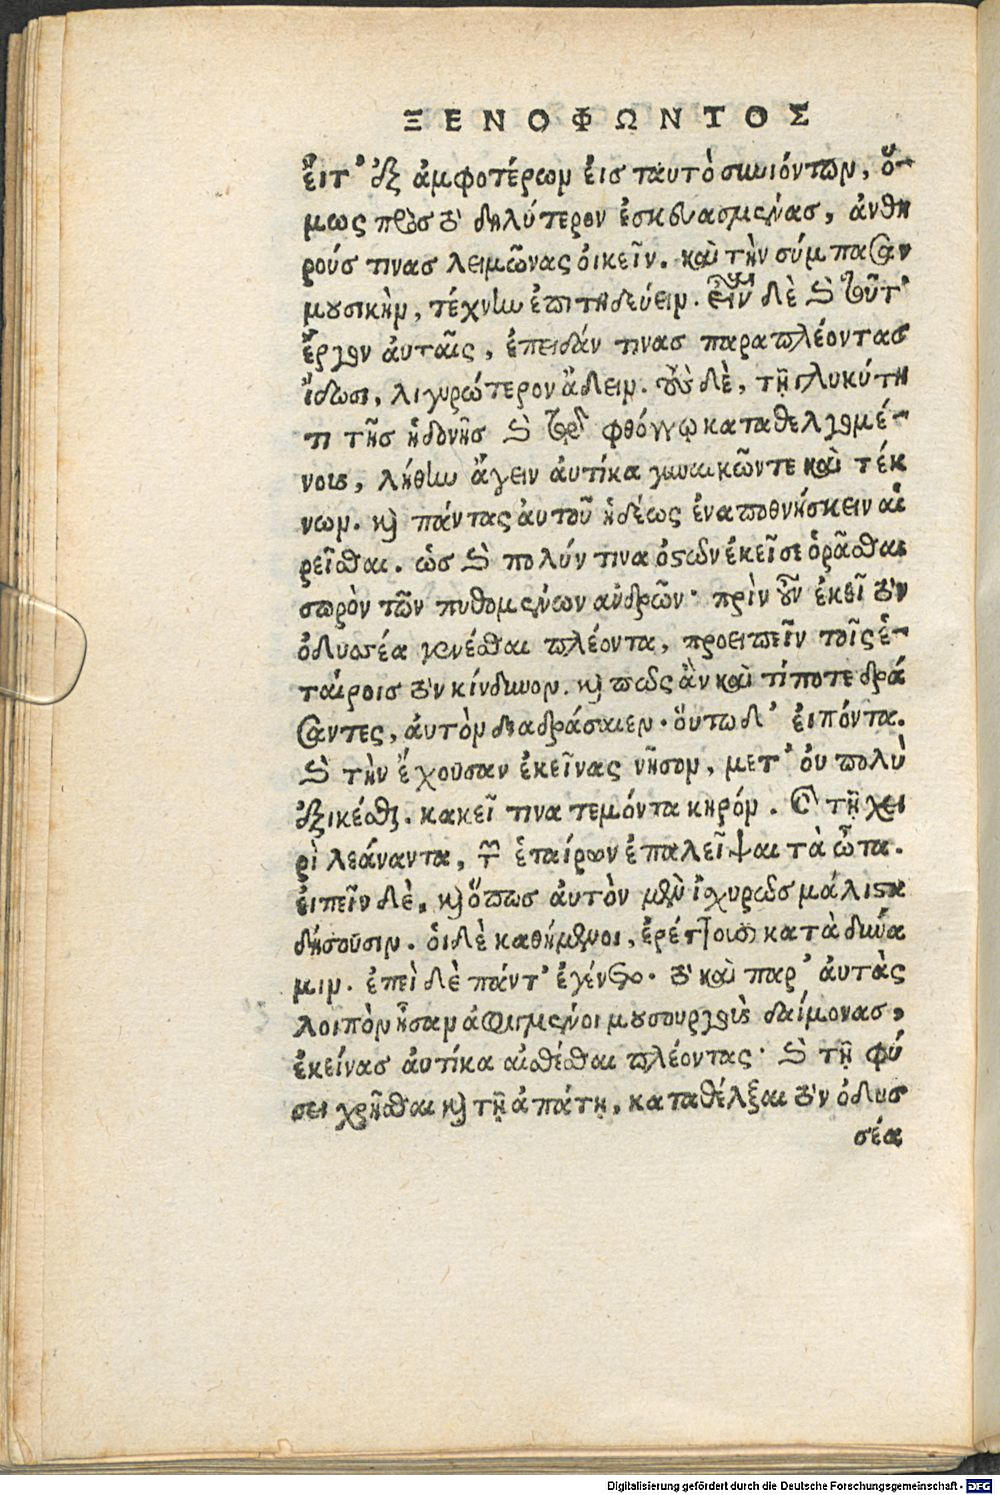 ΞΕΝΟΦΩΝΤΟΣ
εἴτ' ἐξ ἀμφοτέρων εἰς ταυτὸ συνιόντων, ὅ-
μως πρὸς τὸ θηλύτερον ἐσκευασμένας, ἀνθη
ρούς τινας λειμῶνας οἰκεῖν. καὶ τὴν σύμπασαν
μουσικὴν, τέχνην ἐπιτηδεύειν. εἶναι δὲ καὶ τοῦτ'
ἔργον αὐταῖς, ἐπειδάν τινας παραπλέοντας
ἴδωσι, λιγυρώτερον ᾄδειν. τοὺς δὲ, τῇ γλυκύτη
τι τῆς ἡδονῆς καὶ τοῦ φθόγγῳ καταθελγομέ-
νοις, λήθην ἄγειν αὐτίκα γυναικῶντε καὶ τέκ
νων. καὶ πάντας αὐτοῦ ἡδέως ἐναποθνήσκειν αἱ
ρεῖσθαι. ὡς καὶ πολύν τινα ὀστῶν ἐκεῖσε ὁρᾶσθαι
σωρὸν τῶν πυθομένων ἀνδρῶν· πρὶν οὖν ἐκεῖ τὸν
ὀδυσσέα γενέσθαι πλέοντα, προειπεῖν τοῖς ἑ-
ταίροις τὸν κίνδυνον. καὶ πῶς ἂν καὶ τί ποτε δρά
σαντες, αὐτὸν διαδράσαιεν· οὕτω δ' εἰπόντα.
καὶ τὴν ἔχουσαν ἐκείνας νῆσον, μετ' οὐ πολὺ
ἐξικέσθαι. κακεῖ τινα τεμόντα κηρόν. καὶ τῇ χει
ρὶ λεάναντα, τῶν ἑταίρων ἐπαλεῖψαι τὰ ὦτα.
εἰπεῖν δὲ, καὶ ὅπως αὐτὸν μὲν ἰσχυρῶς μάλιστα
δήσουσιν. οἱ δὲ καθήμενοι, ἐρέττοιεν κατὰ δύνα
μιν. ἐπεὶ δὲ πάντ' ἐγένετο· τὸ καὶ παρ' αὐτὰς
λοιπὸν ἦσαν ἀφιγμένοι μουσουργοὺς δαίμονας,
ἐκείνας αὐτίκα αἰσθέσθαι πλέοντας· καὶ τῇ φύ
σει χρῆσθαι καὶ τῇ ἀπάτῃ, καταθέλξαι τὸν ὀδυσ
σέα
Digitalisierung gefördert durch die Deutsche Forschungsgemeinschaft - DFG